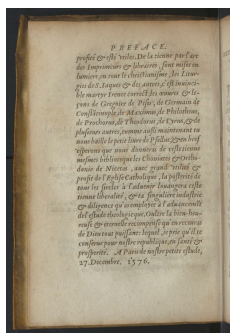 PREFACE.
profict & esti vtilité. De la tienne par l'art
des Imprimeurs & libraires, sont mise en
lumiere, en tout le christianisme, les Litur-
gies de S. Iaques & des autres, & est inuinci-
ble martyr Irenee correct: les œuures & le-
çons de Gregoire de Pise, de Germain de
Constātinople, de Maximus, de Philotheus,
de Prochorus, de Theodorus, de Cyrus, & de
plusieurs autres, comme aussi maintenant tu
nous baille le petit liure de Psellus, & en bref
esperons que nous donneras de ceste tienne
mesmes bibliotheque les Choniates & Ortho-
doxie de Nicetas, auec grand vtilité &
profit de l'Eglise Catholique, la posterité de
tous les siecles à l'aduenir louangera ceste
tienne liberalité, & ta singuliere industrie
& diligence qu'as employée à l'aduancemēt
de l'estude theologique. Outre la bien-heu-
reuse & eternelle recompense qu'en receuras
de Dieu tout puissant: lequel ie prie qu'il te
conserue pour nostre republique, en santé &
prosperité. A Paris de nostre petite estude,
27. Decembre, 1576.